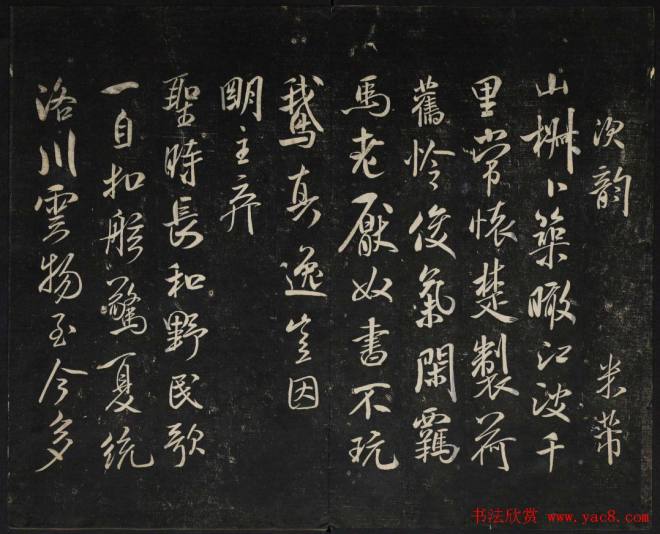 次韵 米芾
山椒卜築瞰江波千
里常懷楚製荷
舊怜俊氣閑羈
馬老厭奴書不玩
鵝真逸豈因
明主弃
聖時長和野民歌
一自扣舷驚夏統
洛川雲物至今多
书法欣赏 www.yac8.com